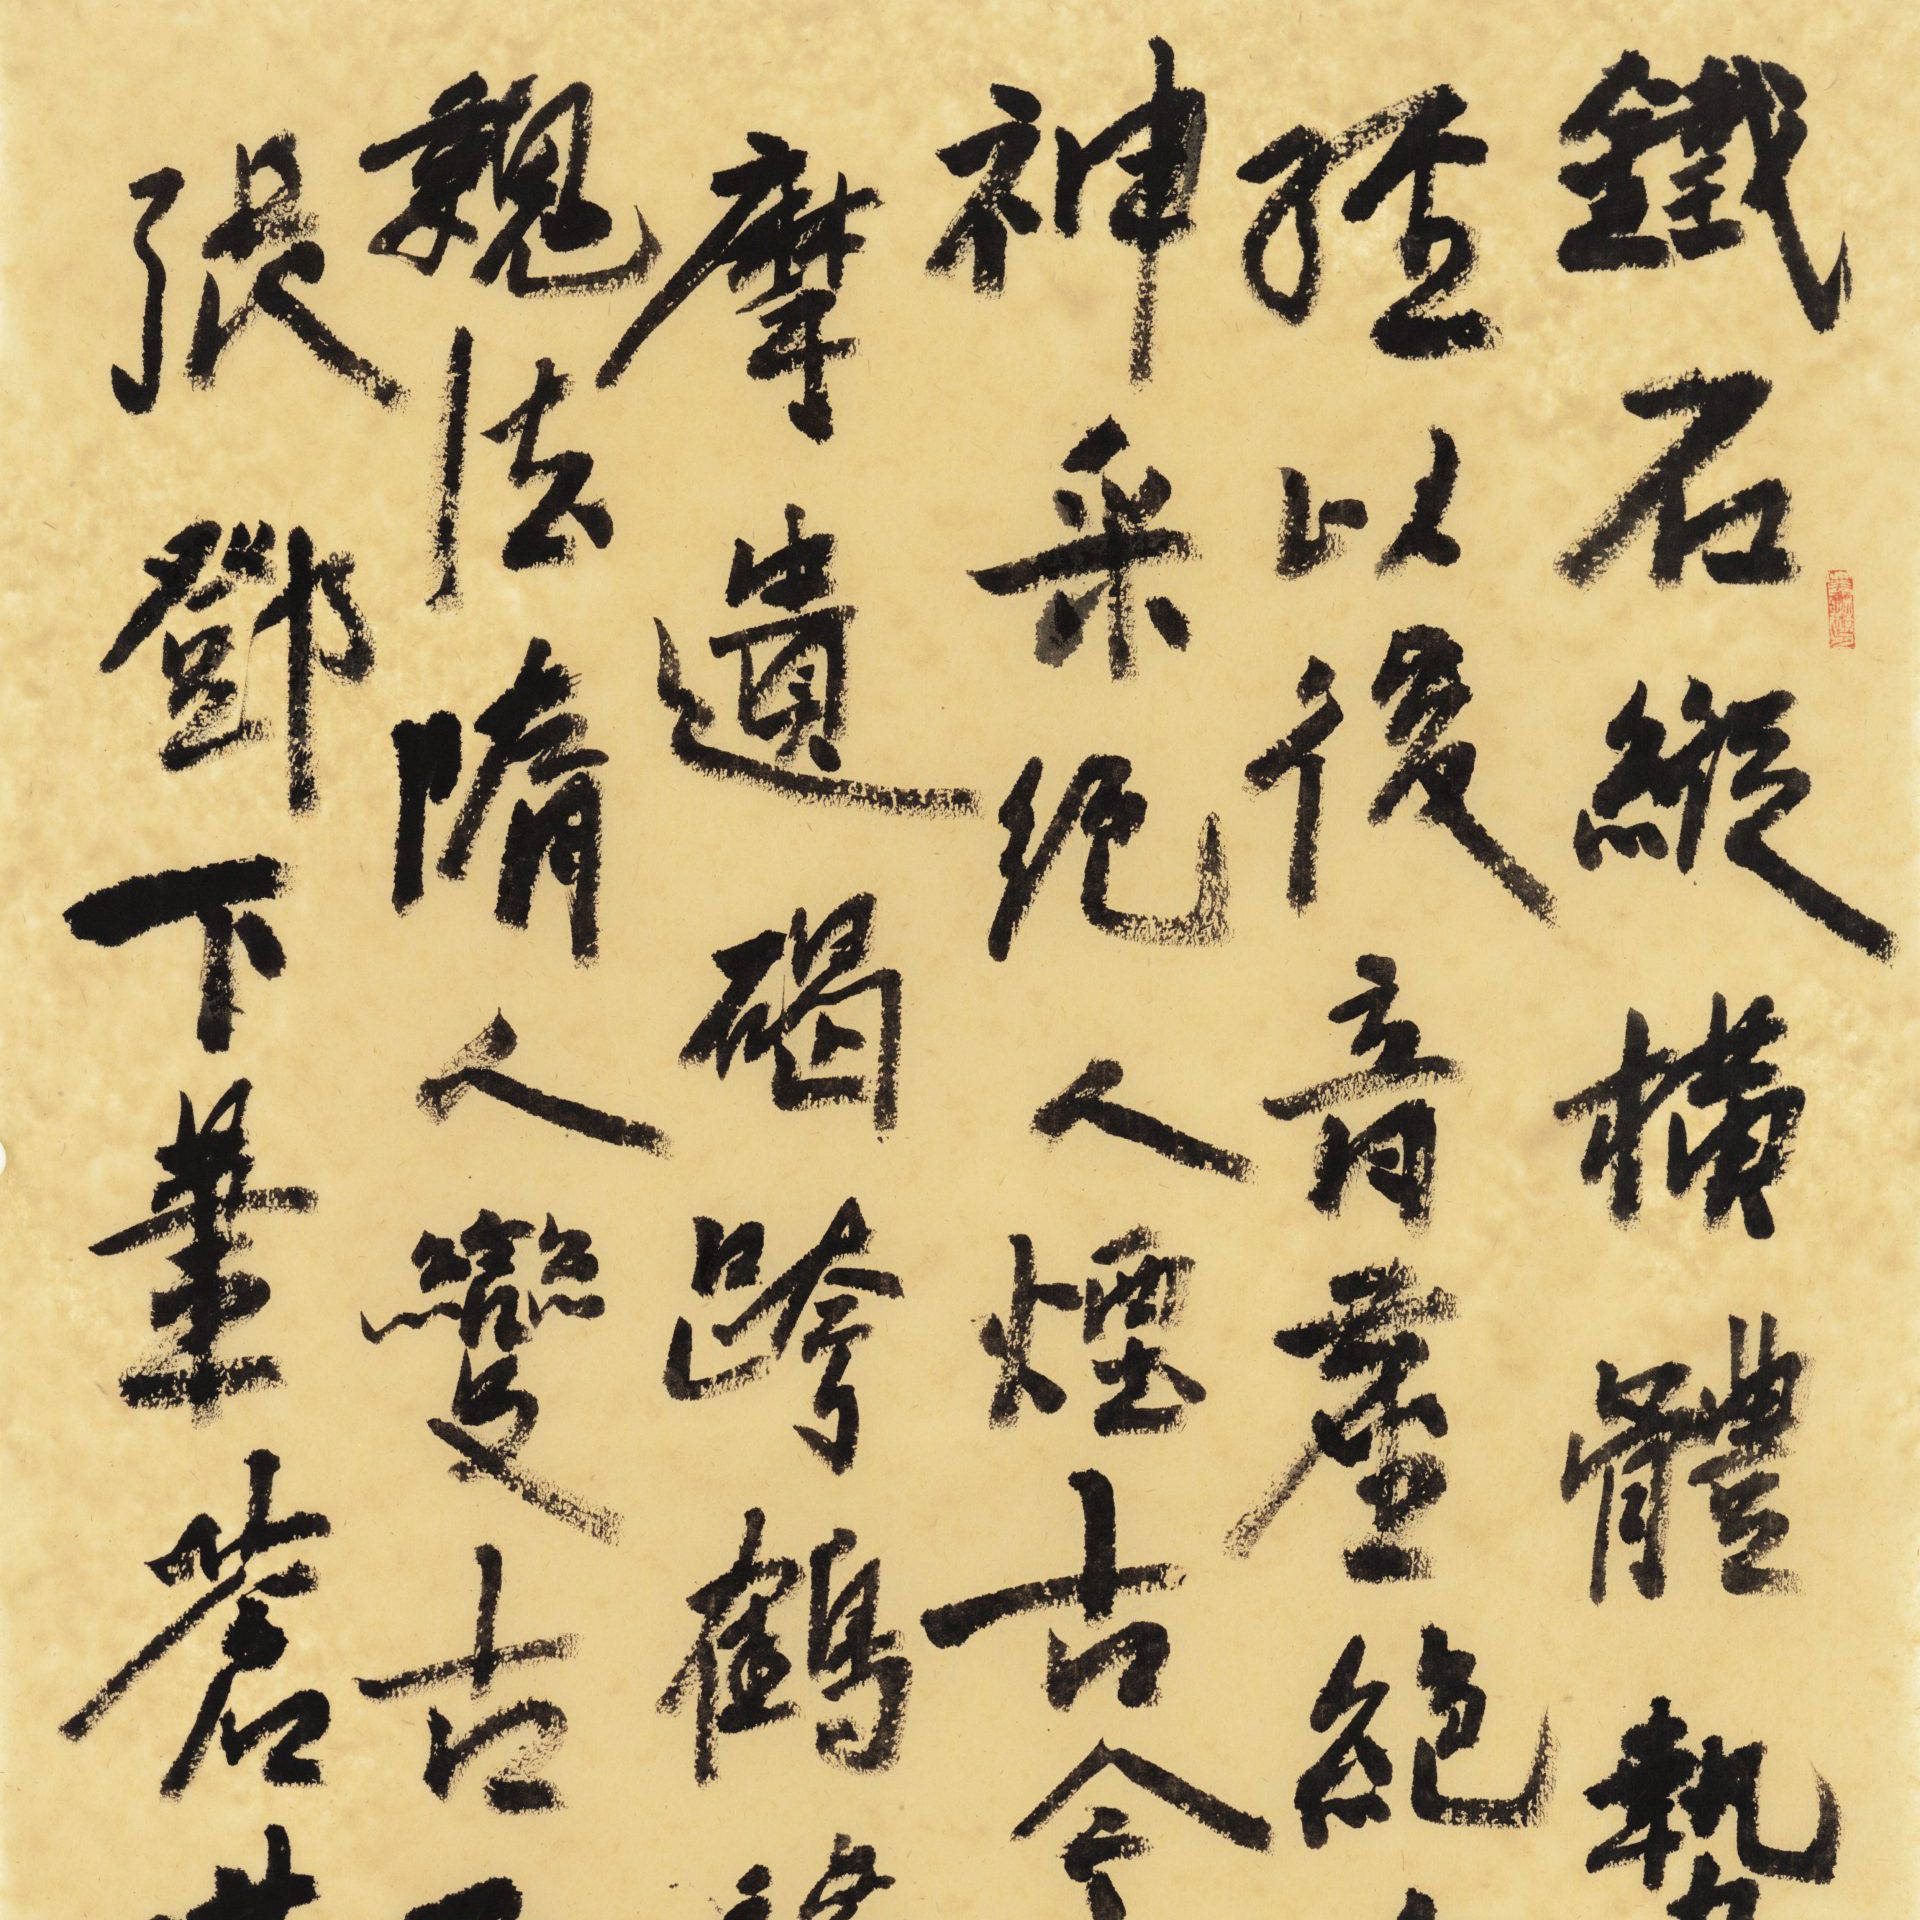 鐵石縱橫體勢
經以後音塵絕
神采絕人煙古今
摩遺碣跨鶴
魏法隋人變古
張鄧下筆蒼